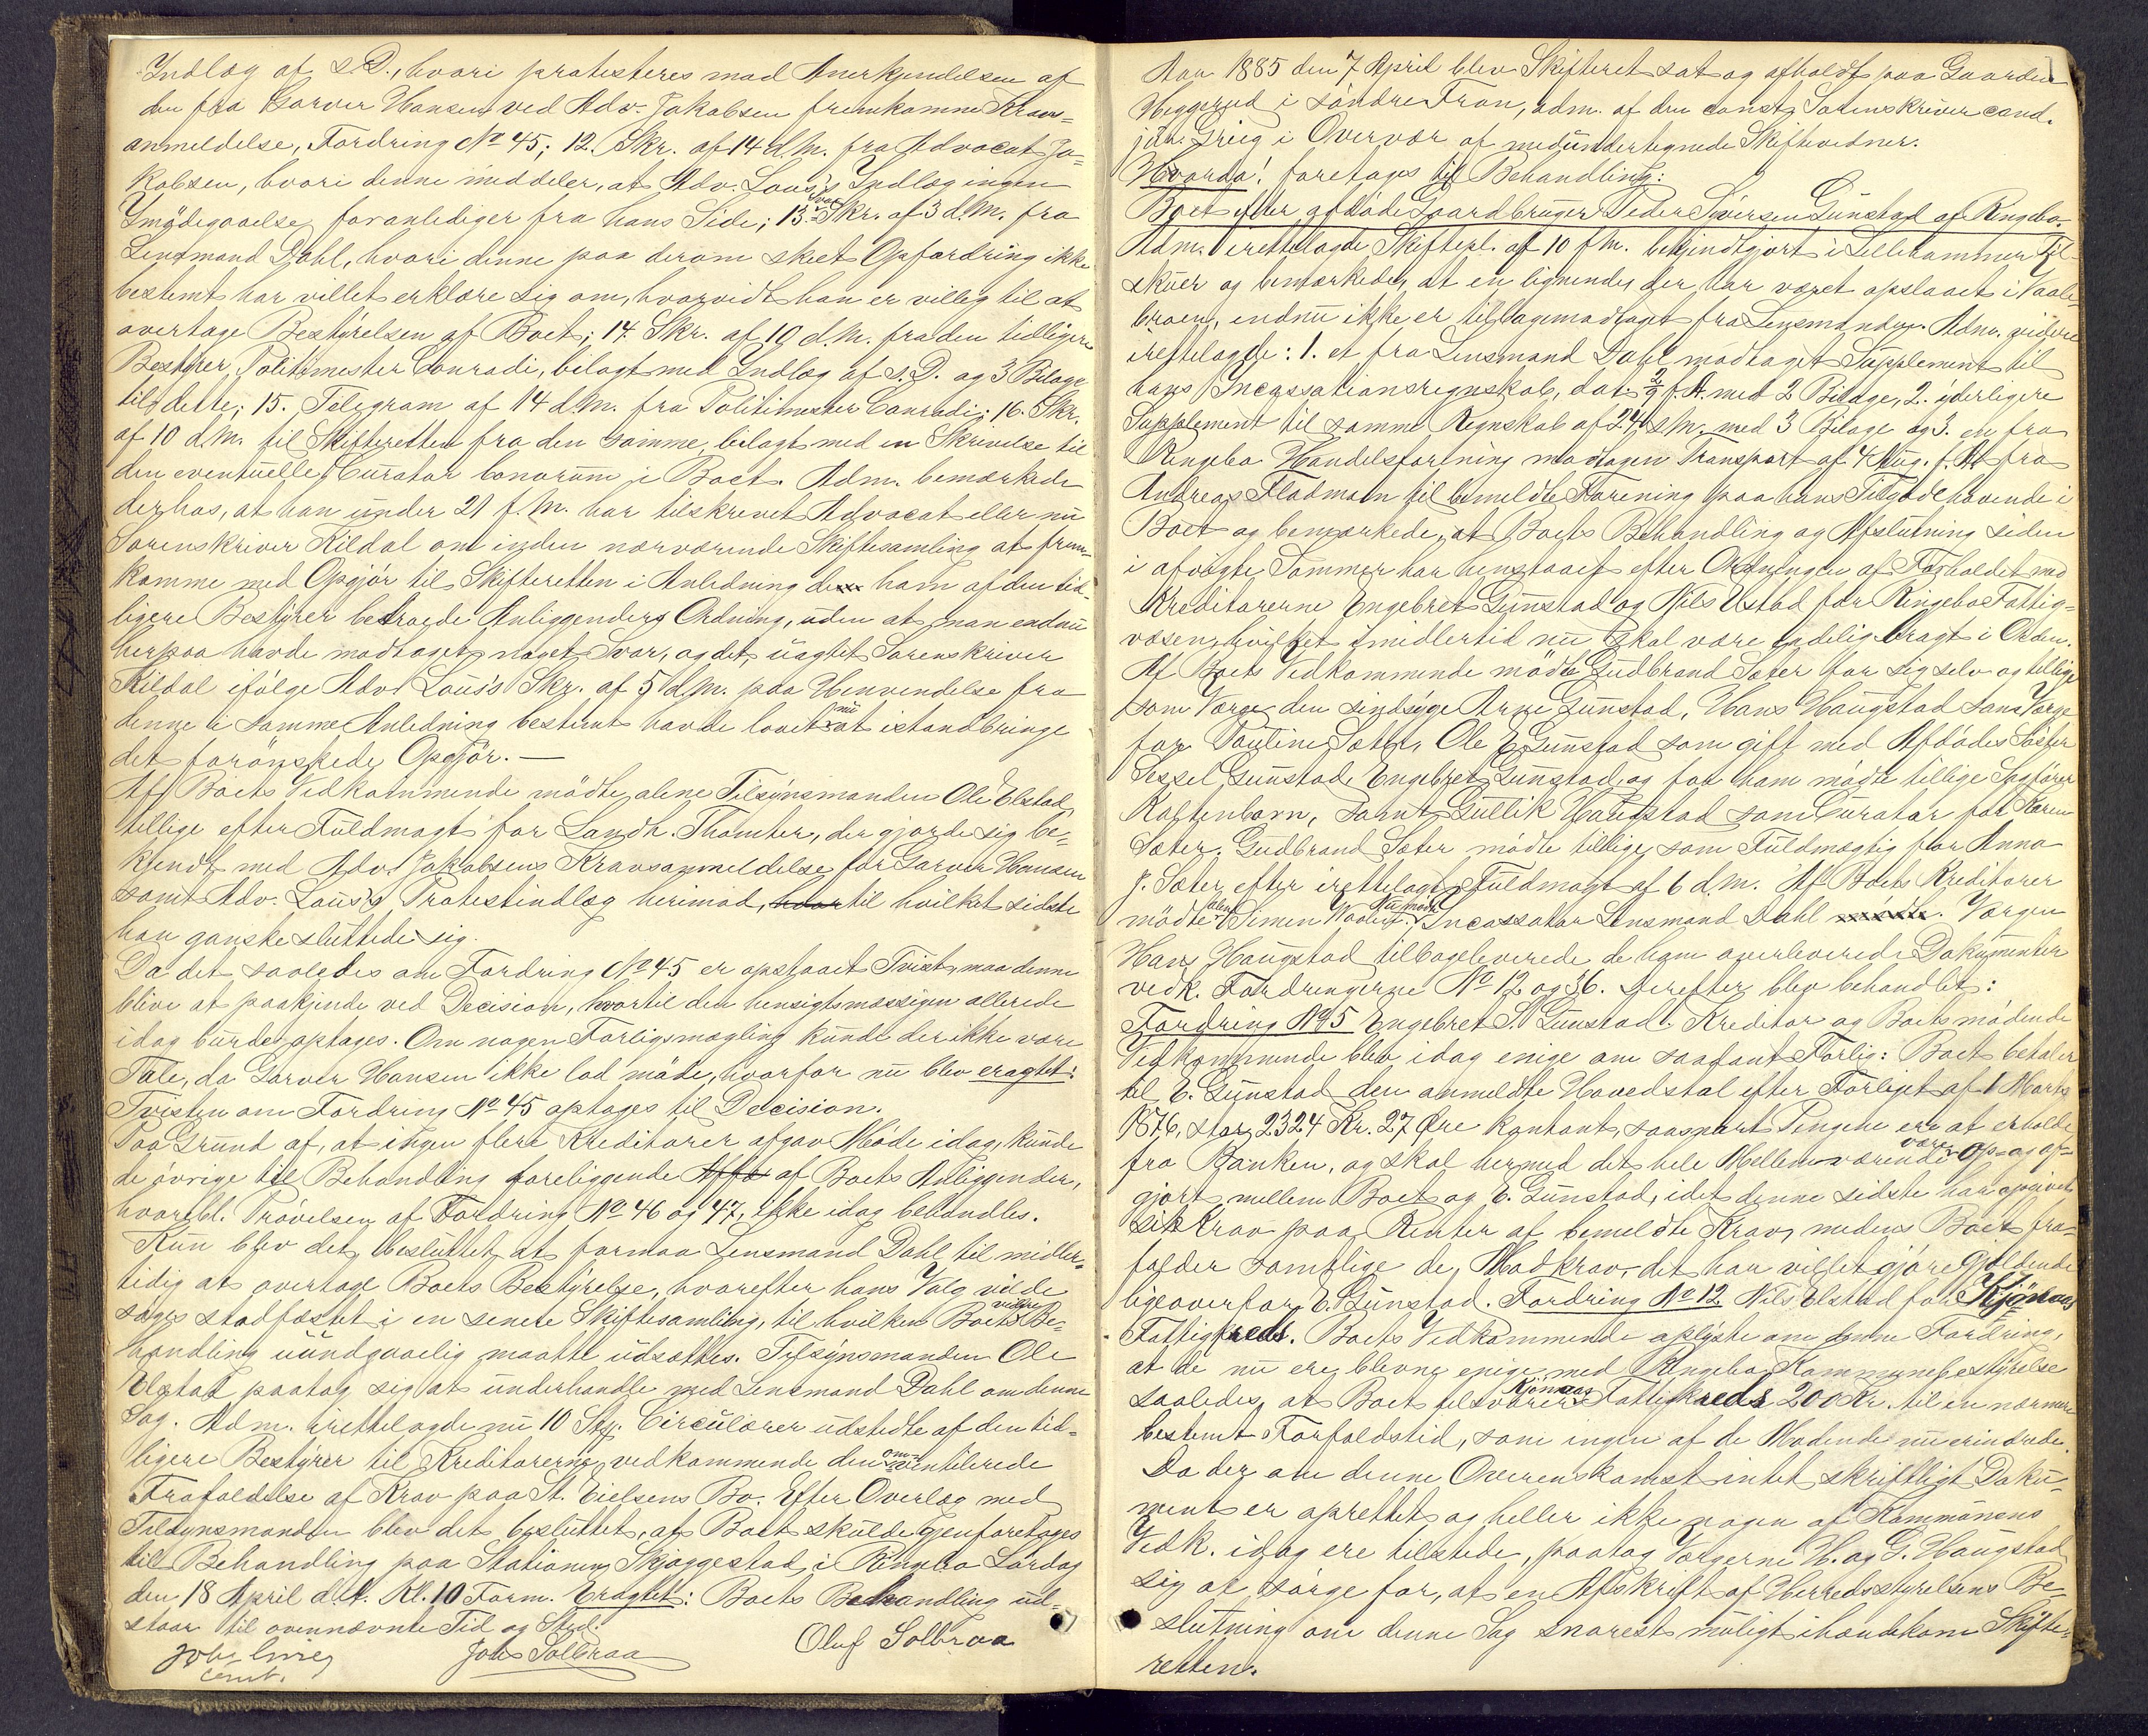 Indlæg af s. D., hvori protesteres mod Anerkjendelsen af
den fra Garver Hansen ved Adv. Jakobsen fremkomne Kravs-
anmeldelse, Fordring No 45; 12. Skr. af 14 d. M. fra Advocat Ja-
kobsen, hvori denne meddeler, at Adv. Lous's Indlæg ingen
Imødegaaelse foranlediger fra hans Side; 13. Svar Skr. af 3 d. M. fra
Lensmand Dahl, hvori denne paa derom skeet Opfordring ikke
bestemt har villet erklære sig om, hvorvidt han er villig til at
overtage Bestyrelsen af Boet; 14. Skr. af 10 d. M. fra den tidligere
Bestyrer, Politimester Conradi, bilagt med Indlæg af s. D. og 3 Bilage
til dette; 15. Telegram af 14 d. M. fra Politimester Conradi; 16. Skr.
af 10 d. M. til Skifteretten fra den samme, bilagt med en Skrivelse til
den eventuelle Curator bonorum i Boet. Adm. bemærkede
derhos, at han under 21 f. M. har tilskrevet Advocat eller nu
Sorenskriver Kildal om inden nærværende Skiftesamling at frem-
komme med Opgjør til Skifteretten i Anledning de ham af den tid-
ligere Bestyrer betroede Anliggenders Ordning, uden at man endnu
herpaa havde modtaget noget Svar, og det uagtet Sorenskriver
Kildal ifølge Adv. Lous's Skr. af 5 d. M. paa Henvendelse fra
denne i samme Anledning bestemt havde lovet nu at istandbringe
det forønskede Opgjør. —
Af Boets Vedkommende mødte alene Tilsynsmanden Ole Elstad,
tillige efter Fuldmagt for Landh. Thomter, der gjorde sig be-
kjendt med Adv. Jakobsens Kravsanmeldelse for Garver Hansen
samt Adv. Lous's Protestindlæg herimod, hvor til hvilket sidste
han ganske sluttede sig.
Da det saaledes om Fordring No 45 er opstaaet Tvist, maa denne
blive at paakjende ved Decision, hvortil den hensigtsmæssigen allerede
idag burde optages. Om nogen Forligsmægling kunde der ikke være
Tale, da Garver Hansen ikke lod møde, hvorfor nu blev eragtet:
Tvisten om Fordring No 45 optages til Decision.
Paa Grund af, at ingen flere Kreditorer afgav Møde idag, kunde
de øvrige til Behandling foreliggende Affæ af Boets Anliggender,
hvoribl. Prøvelsen af Fordring No 46 og 47, ikke idag behandles.
Kun blev det besluttet at formaa Lensmand Dahl til midler-
tidig at overtage Boets Bestyrelse, hvorefter hans Valg vilde
søges stadfæstet i en senere Skiftesamling, til hvilken Boets videre Be-
handling uundgaaelig maatte udsættes. Tilsynsmanden Ole
Elstad paatog sig at underhandle med Lensmand Dahl om denne
Sag. Adm. irettelagde nu 10 Stk. Circulærer udstedte af den tid-
ligere Bestyrer til Kreditorerne vedkommende den om- ventilerede
Frafaldelse af Krav paa St. Eielsens Bo. Efter Overlæg med
Tilsynsmanden blev det besluttet, at Boet skulde gjenforetages
til Behandling paa Stationen Skjæggestad i Ringebo Lørdag
den 18 April d. A. Kl. 10 Form. Eragtet: Boets Behandling ud-
staar til ovennævnte Tid og Sted.
Joh. Grieg Johs Solbraa Oluf Solbraa
const.
Aar 1885 den 7 April blev Skifteret sat og afholdt paa Gaarden
Heggerud i søndre Fron, adm. af den const. Sorenskriver cand.
jur. Grieg i Overvær af medundertegnede Skiftevidner.
Hvorda! foretages til Behandling:
Boet efter afdøde Gaardbruger Peder Syversen Gunstad af Ringebo.
Adm. irettelagde Skifterl. af 10 f. M. bekjendtgjort i Lillehammer Til-
skuer og bemærkede, at en lignende, der har været opslaaet i Vaale-
broen, endnu ikke er tilbagemodtaget fra Lensmanden. Adm. videre
irettelagde: 1. et fra Lensmand Dahl modtaget Supplement til
hans Incassationsregnskab, dat. 2/9 f. A. med 2 Bilage, 2. yderligere
Supplement til samme Regnskab af 24 s. M. med 3 Bilage og 3. en fra
Ringebo Handelsforening modtagen Transport af 4 Aug. f. A. fra
Andreas Fladmoen til bemeldte Forening paa hans Tilgodehavende i
Boet og bemærkede, at Boets Behandling og Afslutning siden
i afvigte Sommer har henstaaet efter Ordningen af Forholdet med
Kreditorerne Engebret Gunstad og Nils Elstad for Ringebo Fattig-
væsen, hvilket imidlertid nu skal være endelig bragt i Orden.
Af Boets Vedkommende mødte Gudbrand Sæter for sig selv og tillige
som Værge den sindssyge Arne Gunstad, Hans Haugstad som Værge
for Pauline Sæter, Ole E. Gunstad som gift med Afdødes Søster
Sessel Gunstad, Engebret Gunstad, og for ham mødte tillige Sagfører
Kaltenborn, samt Gullik Haugstad som Curator for Karen
Sæter. Gudbrand Sæter mødte tillige som Fuldmægtig for Anna
J. Sæter efter irettelagt Fuldmagt af 6 d. M. Af Boets Kreditorer
mødte alene Simen Vaalen. Nu mødte Incassator Lensmand Dahl mødte. Værgen
Hans Haugstad tilbageleverede de ham overleverede Dokumenter
vedk. Fordringerne No 12 og 36. Derefter blev behandlet:
Fordring No 5 Engebret S. Gunstad. Kreditor og Boets mødende
Vedkommende blev idag enige om saadant Forlig: Boet betaler
til E. Gunstad den anmeldte Hovedstol efter Forliget af 1 Marts
1876, stor 2324 Kr. 27 Øre kontant, saasnart Pengene ere at erholde
fra Banken, og skal hermed det hele Mellemværende være op- og af-
gjort mellem Boet og E. Gunstad, idet denne sidste har opgivet
sit Krav paa Renter af bemeldte Krav, medens Boet fra-
falder samtlige de Modkrav, det har villet gjøre gjældende
ligeoverfor E. Gunstad. Fordring No 12 Nils Elstad for Kjønaas
Fattigkreds. Boets Vedkommende oplyste om denne Fordring,
at de nu ere blevne enige med Ringebo Kommunebestyrelse
saaledes, at Boet tilsvarer Kjønaas Fattigkreds 200 Kr. til en nærmere
bestemt Forfaldstid, som ingen af de Mødende nu erindrede.
Da der om denne Overenskomst intet skriftligt Doku-
ment er oprettet og heller ikke nogen af Kommunens
Vedk. idag ere tilstede, paatog Værgerne H. og G. Haugstad
sig at sørge for, at en Afskrift af Herredsstyrelsens Be-
slutning om denne Sag snarest muligt ihændekom Skifte-
retten.